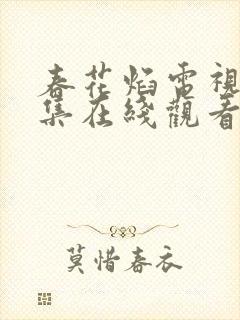 春花焰電視
集在綫觀看
莫惜春衣